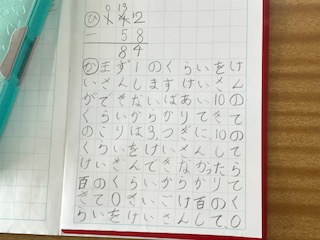 ひ 142
13
－ 58
84
か まず1のくらいをけ
いさんします。けいさん
ができないばあい10の
くらいからかりてきて
のこりは3。つぎに10の
くらいをけいさんして
けいさんできなかったら
百のくらいからかりて
きて0。さいごは百のく
らいをけいさんして、0